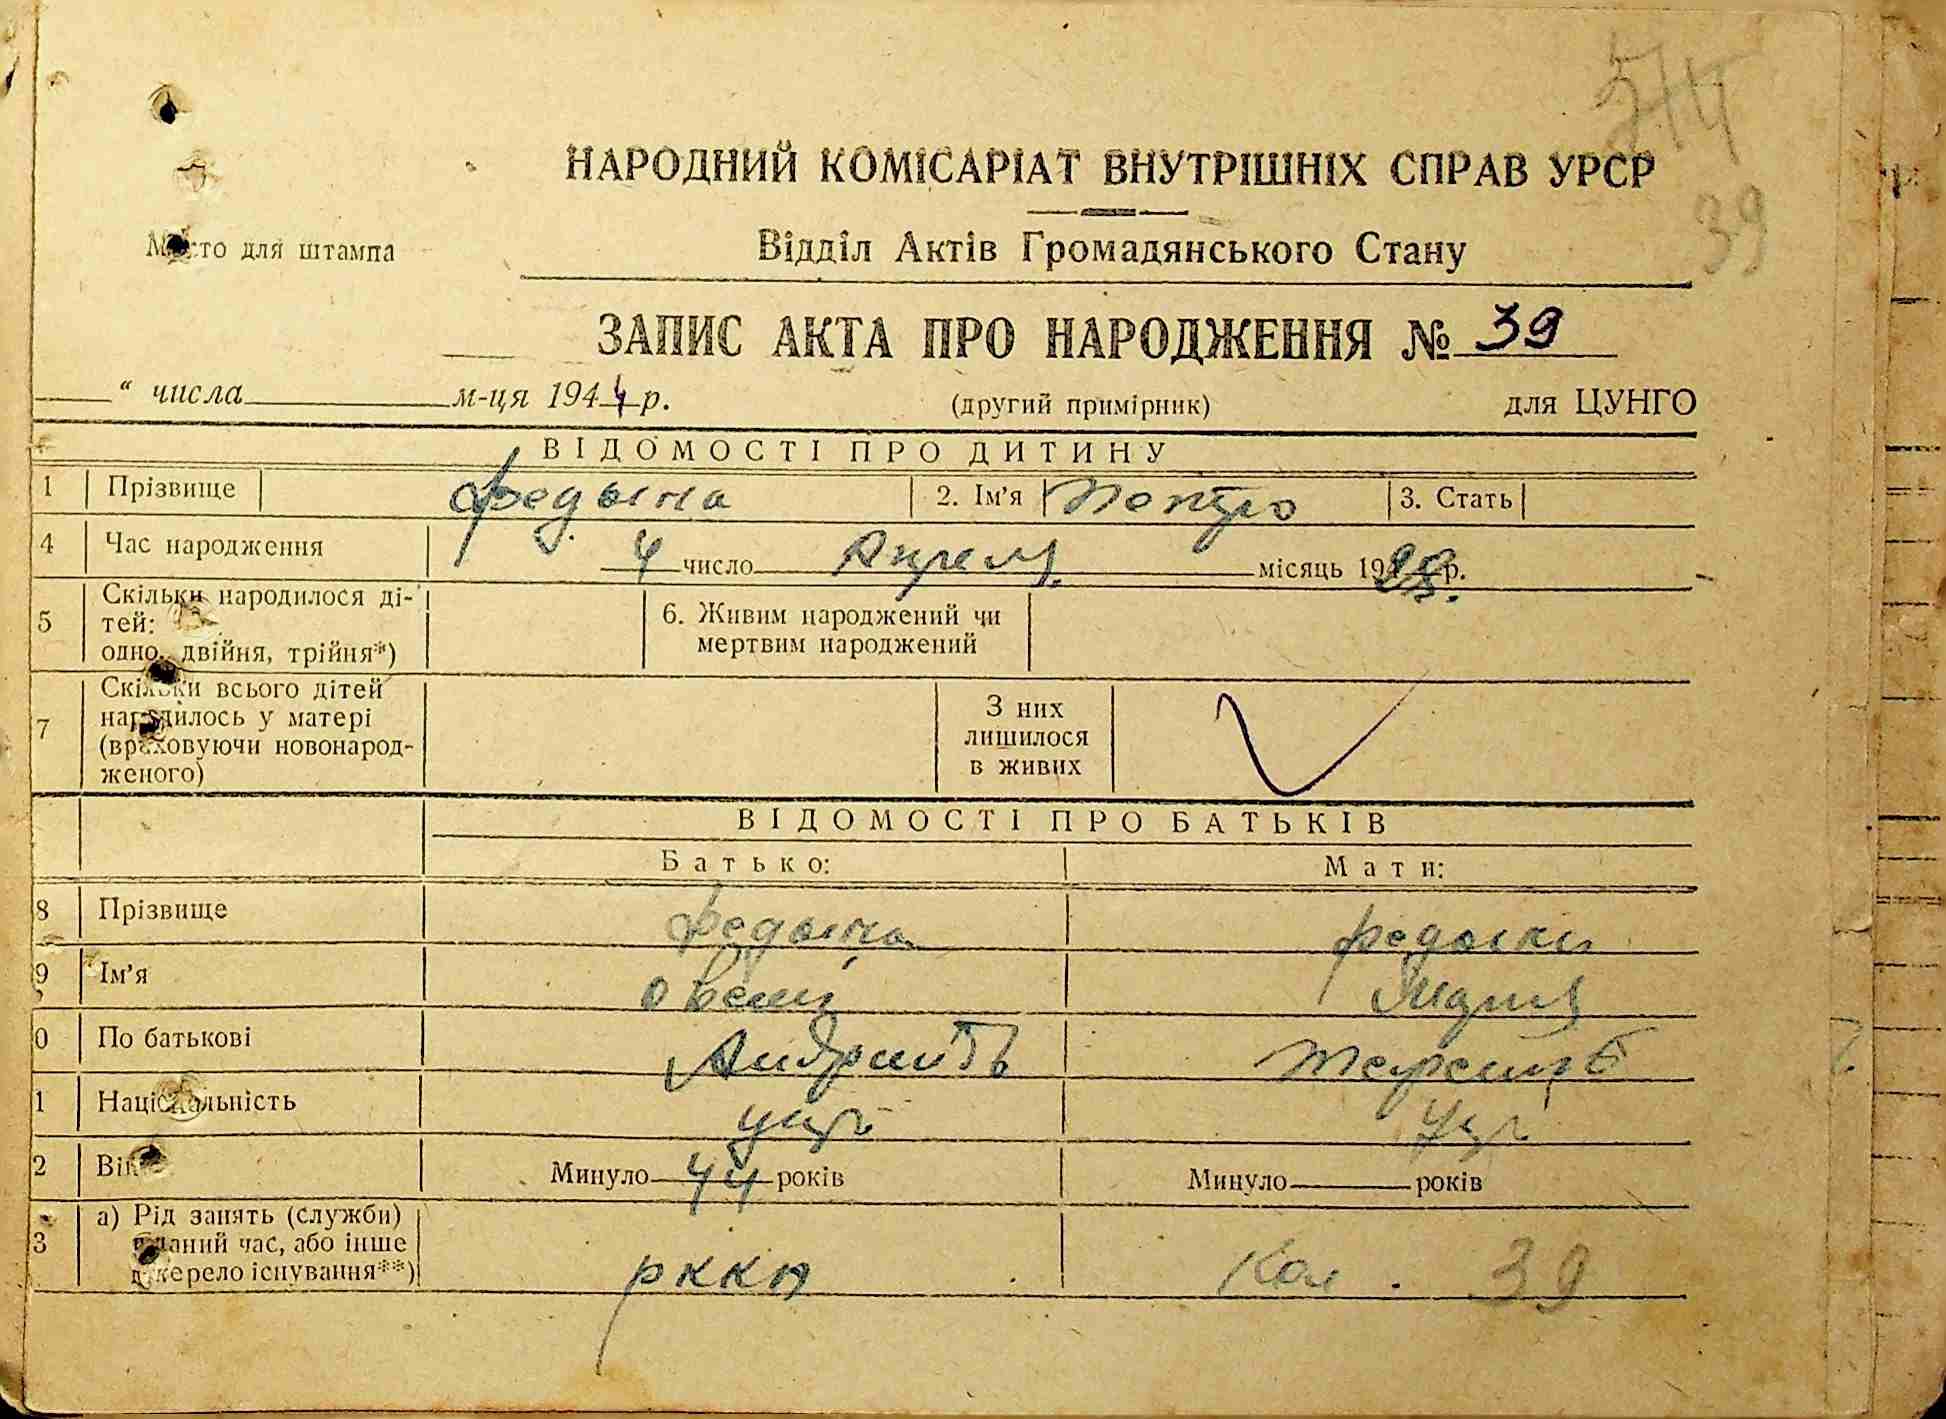 514
39
НАРОДНИЙ КОМІСАРІАТ ВНУТРІШНІХ СПРАВ УРСР
Місто для штампа
Відділ Актів Громадянського Стану
ЗАПИС АКТА ПРО НАРОДЖЕННЯ № 39
“ числа м-ця 1944 р. (другий примірник) для ЦУНГО
ВІДОМОСТІ ПРО ДИТИНУ
1 Прізвище Федына 2. Ім’я Петро 3. Стать
4 Час народження 4 число Апреля місяць 19 р.
5 Скільки народилося ді-
тей:
одно, двійня, трійня*)
6. Живим народжений чи
мертвим народжений
7 Скільки всього дітей
народилось у матері
(враховуючи новонарод-
женого)
З них
лишилося
в живих
ВІДОМОСТІ ПРО БАТЬКІВ
Батько: Мати:
8 Прізвище Федына Федыки
9 Ім’я Овсий Мария
0 По батькові
1 Національність укр. Укр.
2 Вік Минуло 44 років Минуло років
3 а) Рід занять (служби)
в даний час, або інше
джерело існування**)
РККА Кол. 39